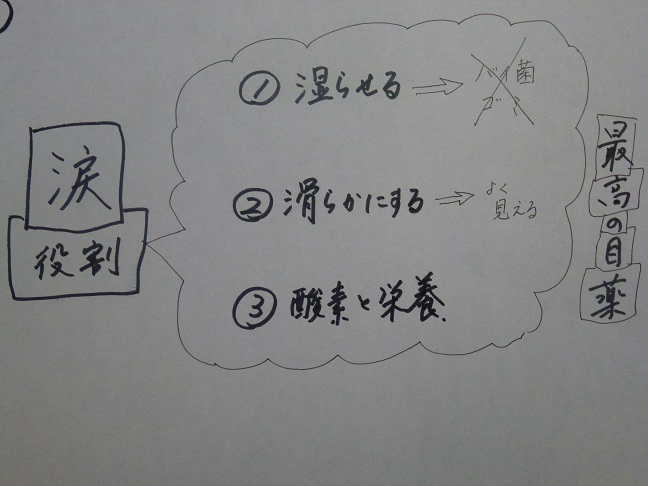 涙
役割
① 湿らせる ⇒ バイ菌
ゴミ
② 滑らかにする ⇒ よく
見える
③ 酸素と栄養.
最高の目薬